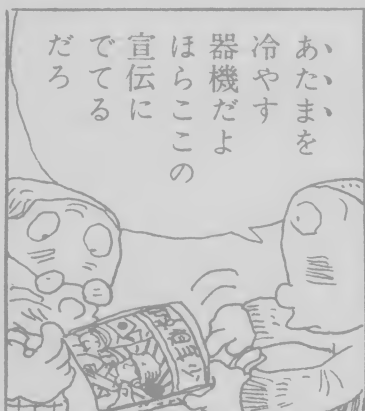 あたまを
冷やす
器機だよ
ほらここの
宣伝に
でてる
だろ